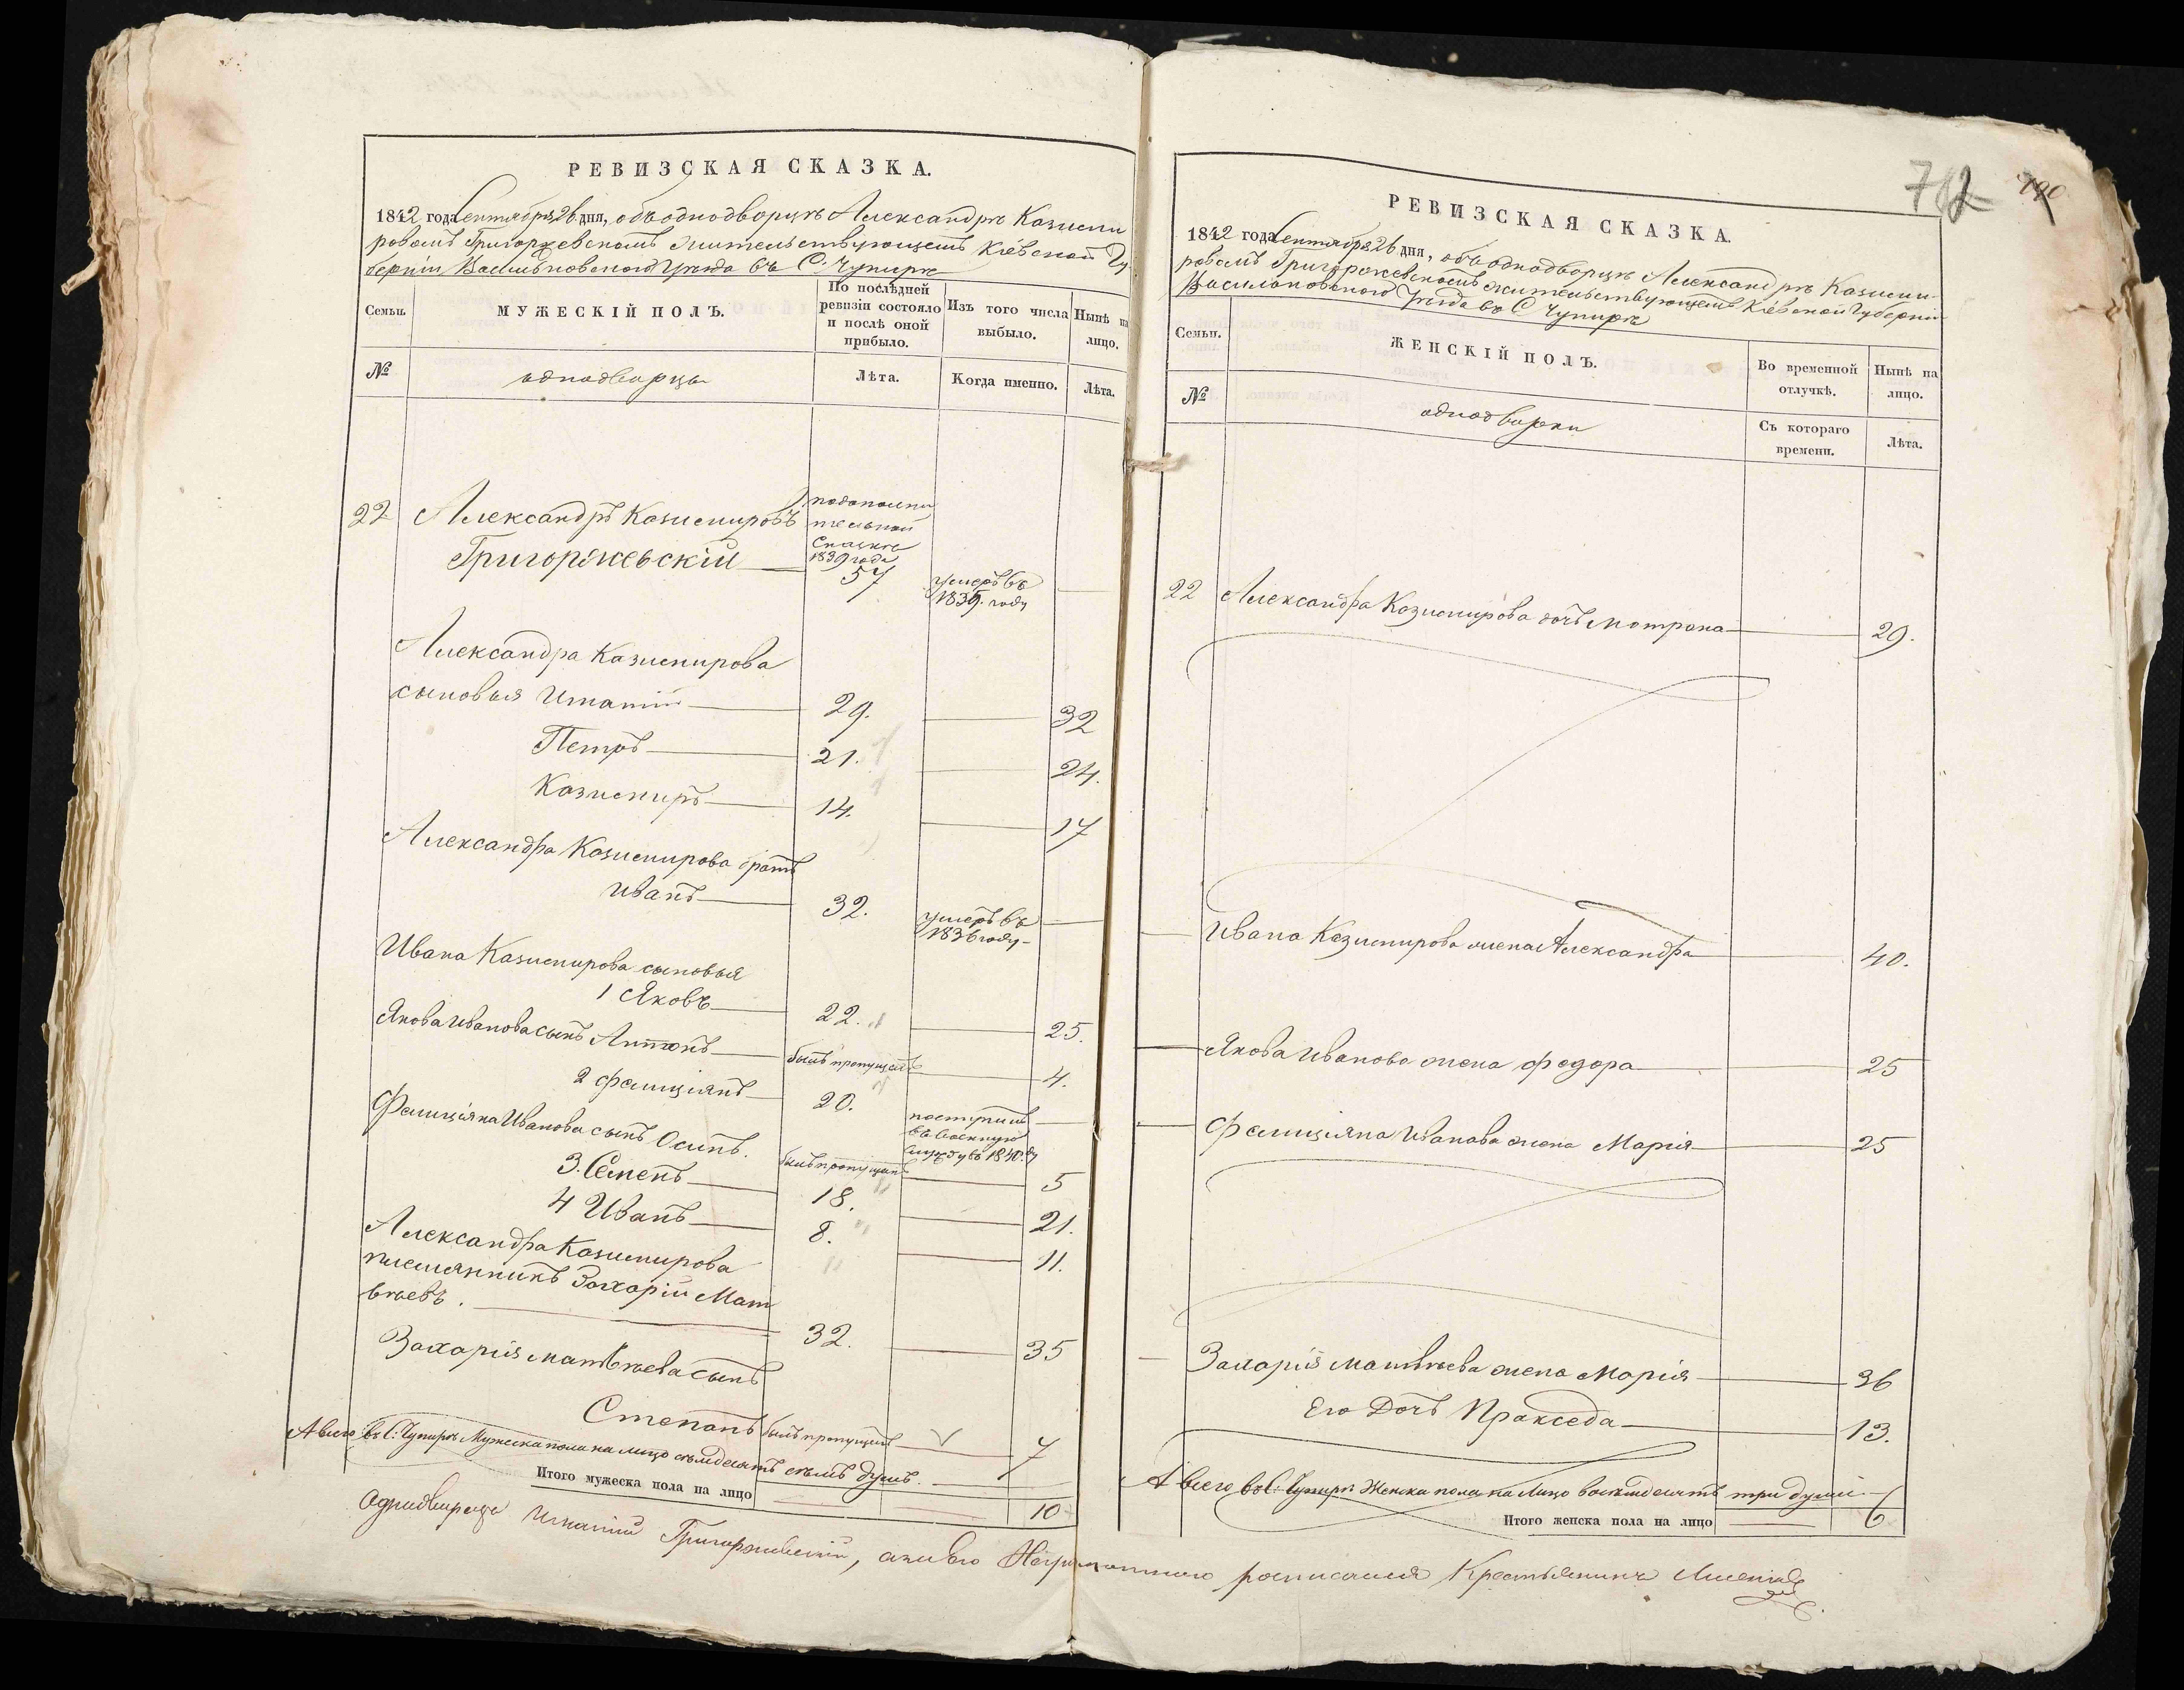 РЕВИЗСКАЯ СКАЗКА.
1842 года Сентября 26 дня, объ однодворцѣ Александрѣ Казими
ровомъ Григоржевскомъ жительствующемъ Кіевской Гу
берніи Васильковскаго Уѣзда въ С. Чупирѣ
Семьи.
МУЖЕСКІЙ ПОЛЪ.
По послѣдней
ревизіи состояло
и послѣ оной
прибыло.
Изъ того числа
выбыло.
Нынѣ на
лицо.
№
однодворцы
Лѣта.
Когда именно.
Лѣта.
22 Александръ Казимировъ
Григоржевскій
по дополни
тельной
Сказкѣ
1839 года
57
умеръ въ
1839. году
Александра Казимирова
сыновья Игнатій 29. 32
Петръ 21. 24.
Казимиръ 14. 17
Александра Казимирова братъ
Иванъ 32.
умеръ въ
1836 году
Ивана Казимирова сыновья
1 Яковъ 22. 25.
Якова Иванова сынъ Антонъ былъ пропущенъ 4.
2 Фелиціянъ 20.
поступилъ
въ военную
службу въ 1840. г
Фелиціяна Иванова сынъ Осипъ. былъ пропущенъ 5
3. Семенъ 18. 21.
4 Иванъ 8. 11.
Александра Казимирова
племянникъ Захарій Мат
вѣевъ. 32. 35
Захарія Матвѣева сынъ
Степанъ былъ пропущенъ 7
А всего въ С: Чупирѣ Мужеска пола на лицо семдесятъ семъ душъ.
Итого мужеска пола на лицо 10
РЕВИЗСКАЯ СКАЗКА.
1842 года Сентября 26 дня, объ однодворцѣ Александрѣ Казими
ровомъ Григоржевскомъ жительствующемъ Кіевской Губерніи
Васильковскаго Уѣзда въ С. Чупирѣ
Семьи.
ЖЕНСКІЙ ПОЛЪ.
Во временной
отлучкѣ.
Нынѣ на
лицо.
№
однодворки
Съ котораго
времени.
Лѣта.
22 Александра Казимирова дочь Мотрона 29.
Ивана Казимирова жена Александра 40.
Якова Иванова жена Федора 25
Фелиціяна Иванова жена Марія 25
Захарія Матвѣева жена Марія 36
Его Дочь Пракседа 13.
А всего въ С: Чупирѣ Женска пола на Лицо восемдесятъ три души.
Итого женска пола на лицо 6
Однодворецъ Игнатій Григоржевскій, а за его неграмотного росписался Крестьянинъ